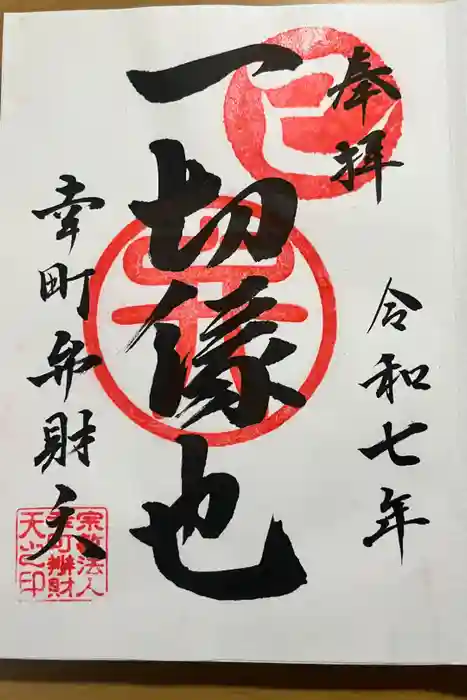 奉拝
令和七年
巳
一切縁也
幸町弁財天
宗教法人
幸町辨財
天之印